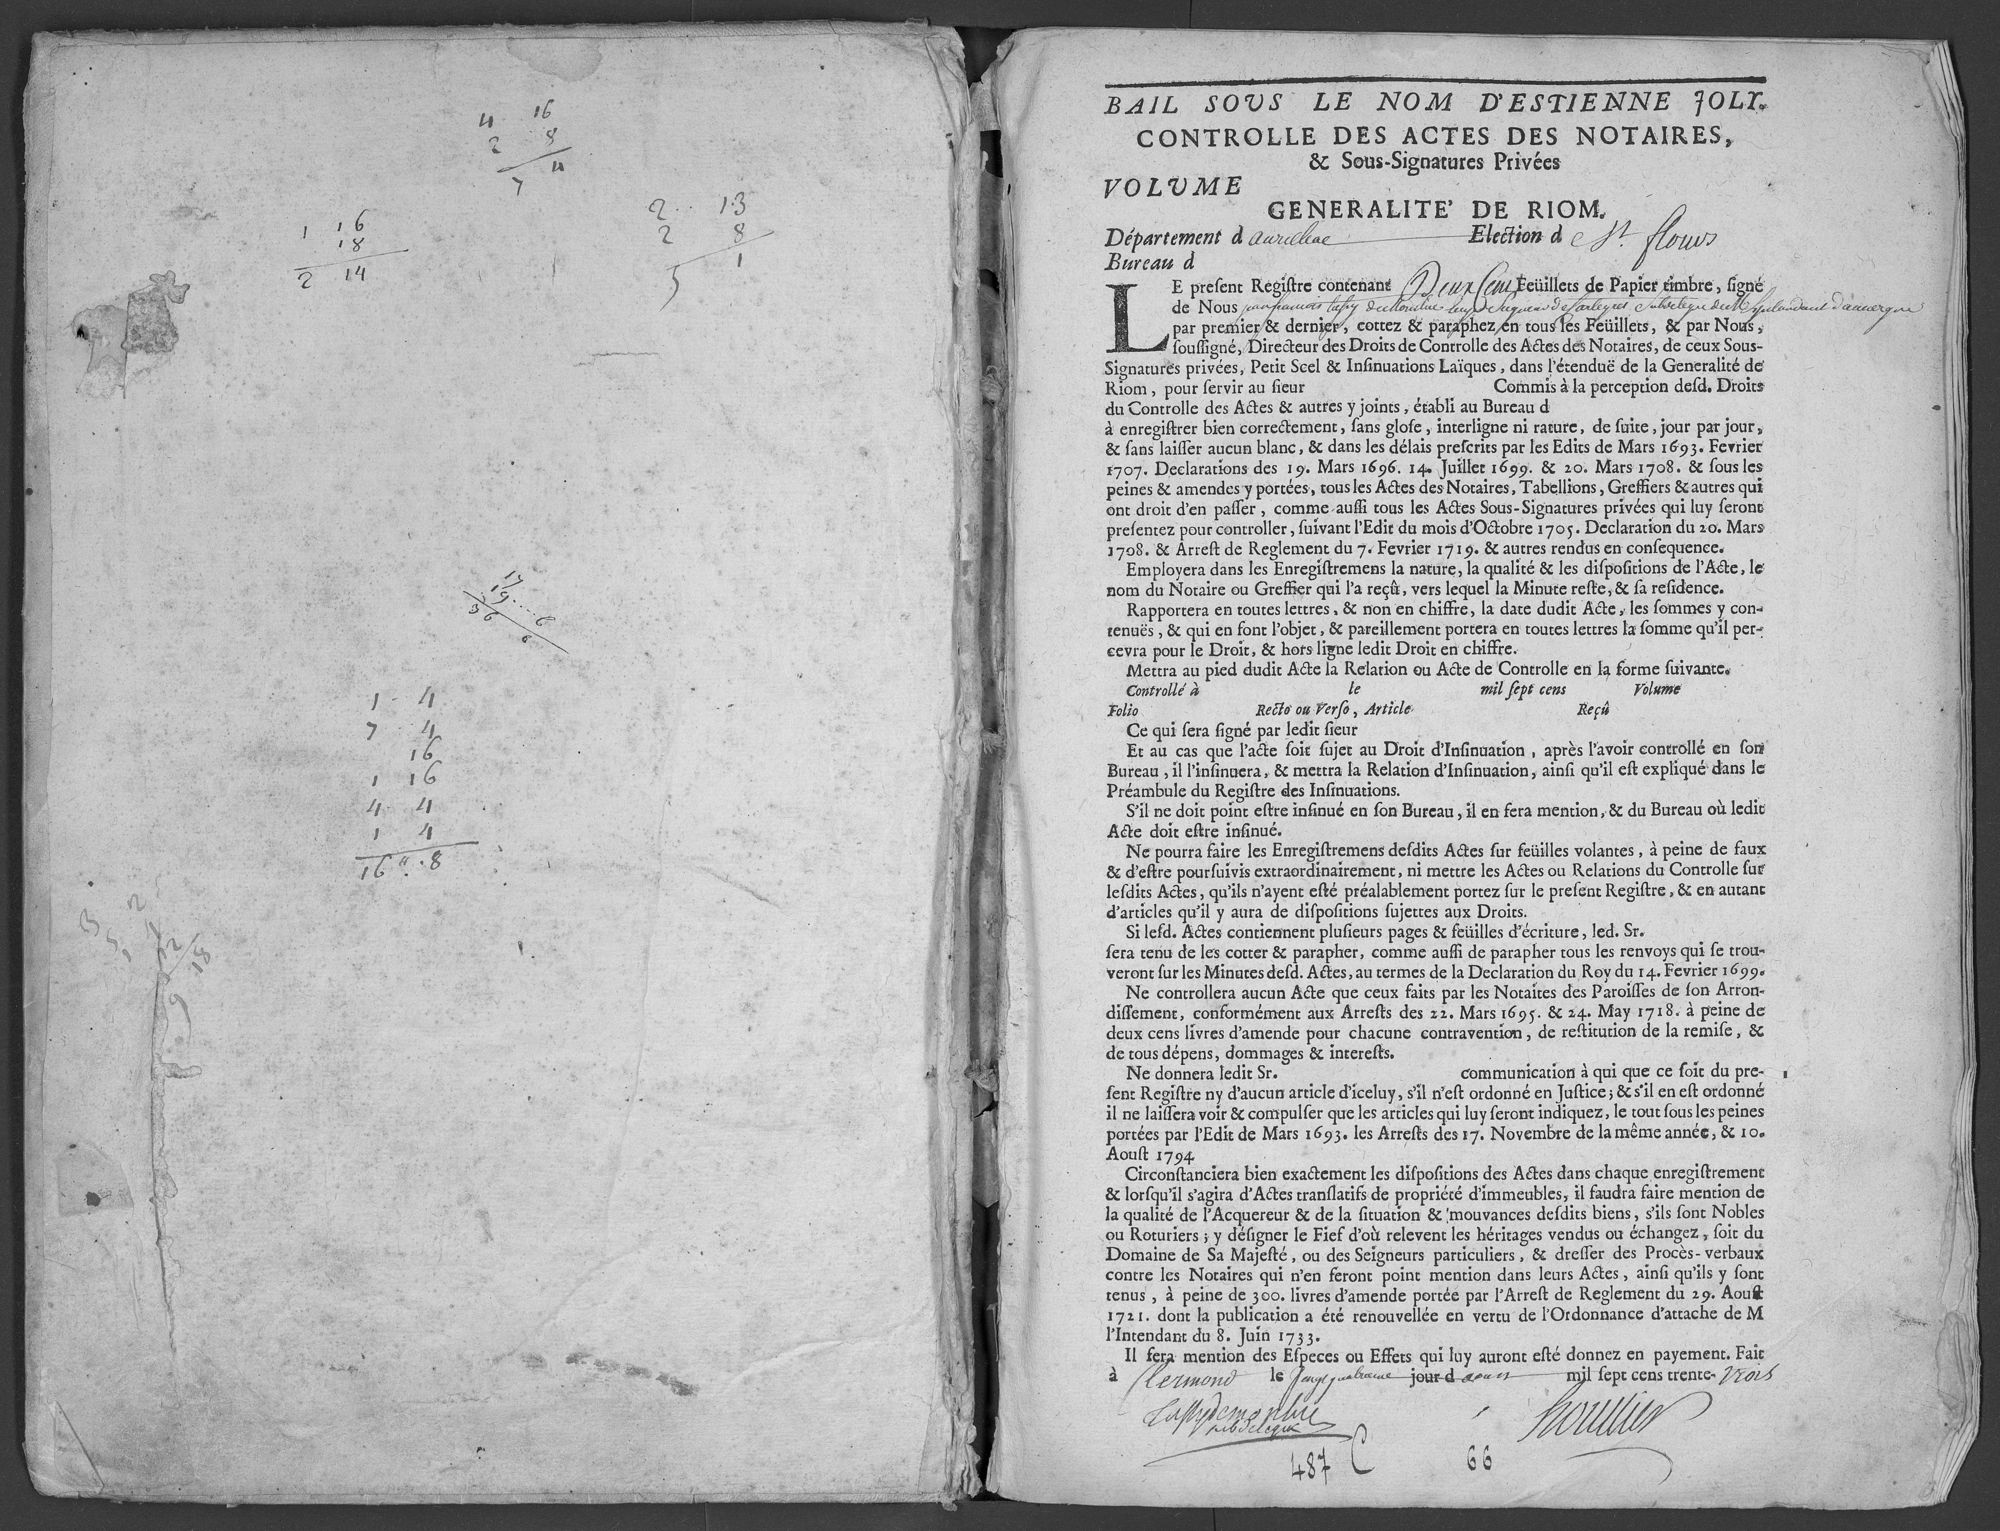 4 16
2 8
7 4
1 16
18
2 14
2 13
2 8
5 1
17
19 6
36 6
1 4
7 4
16
1 16
4 4
1 4
16 " 8
BAIL SOVS LE NOM D'ESTIENNE JOLY.
CONTROLLE DES ACTES DES NOTAIRES,
& Sous-Signatures Privées
VOLUME
GENERALITE' DE RIOM.
Département d aurilhac Election d e St. flours
Bureau d
LE preſent Regiſtre contenant Deux Cens Feüillets de Papier timbre, ſigné
de Nous
par premier & dernier, cottez & paraphez en tous les Feüillets, & par Nous,
ſouſſigné, Directeur des Droits de Controlle des Actes des Notaires, de ceux Sous-
Signatures privées, Petit Scel & Inſinuations Laïques, dans l'étenduë de la Generalité de
Riom, pour ſervir au ſieur Commis à la perception deſd. Droits
du Controlle des Actes & autres y joints, établi au Bureau d
à enregiſtrer bien correctement, ſans gloſe, interligne ni rature, de ſuite, jour par jour,
& ſans laiſſer aucun blanc, & dans les délais preſcrits par les Edits de Mars 1693. Fevrier
1707. Declarations des 19. Mars 1696. 14. Juillet 1699. & 20. Mars 1708. & ſous les
peines & amendes y portées, tous les Actes des Notaires, Tabellions, Greffiers & autres qui
ont droit d'en paſſer, comme auſſi tous les Actes Sous-Signatures privées qui luy ſeront
preſentez pour controller, ſuivant l'Edit du mois d'Octobre 1705. Declaration du 20. Mars
1708. & Arreſt de Reglement du 7. Fevrier 1719. & autres rendus en conſequence.
Employera dans les Enregiſtremens la nature, la qualité & les diſpoſitions de l'Acte, le
nom du Notaire ou Greffier qui l'a reçû, vers lequel la Minute reſte, & ſa reſidence.
Rapportera en toutes lettres, & non en chiffre, la date dudit Acte, les ſommes y con-
tenuës, & qui en font l'objet, & pareillement portera en toutes lettres la ſomme qu'il per-
cevra pour le Droit, & hors ligne ledit Droit en chiffre.
Mettra au pied dudit Acte la Relation ou Acte de Controlle en la forme ſuivante.
Controllé à le mil ſept cens Volume
Folio Recto ou Verſo, Article Reçû
Ce qui ſera ſigné par ledit ſieur
Et au cas que l'acte ſoit ſujet au Droit d'Inſinuation, après l'avoir controllé en ſon
Bureau, il l'inſinuera, & mettra la Relation d'Inſinuation, ainſi qu'il eſt expliqué dans le
Préambule du Regiſtre des Inſinuations.
S'il ne doit point eſtre inſinué en ſon Bureau, il en fera mention, & du Bureau où ledit
Acte doit eſtre inſinué.
Ne pourra faire les Enregiſtremens deſdits Actes ſur feüilles volantes, à peine de faux
& d'eſtre pourſuivis extraordinairement, ni mettre les Actes ou Relations du Controlle ſur
leſdits Actes, qu'ils n'ayent eſté préalablement portez ſur le preſent Regiſtre, & en autant
d'articles qu'il y aura de diſpoſitions ſujettes aux Droits.
Si leſd. Actes contiennent pluſieurs pages & feüilles d'écriture, led. Sr.
ſera tenu de les cotter & parapher, comme auſſi de parapher tous les renvoys qui ſe trou-
veront ſur les Minutes deſd. Actes, au termes de la Declaration du Roy du 14. Fevrier 1699.
Ne controllera aucun Acte que ceux faits par les Notaires des Paroiſſes de ſon Arron-
diſſement, conformément aux Arreſts des 22. Mars 1695. & 24. May 1718. à peine de
deux cens livres d'amende pour chacune contravention, de reſtitution de la remiſe, &
de tous dépens, dommages & intereſts.
Ne donnera ledit Sr. communication à qui que ce ſoit du pre-
ſent Regiſtre ny d'aucun article d'iceluy, s'il n'eſt ordonné en Juſtice; & s'il en eſt ordonné
il ne laiſſera voir & compulſer que les articles qui luy ſeront indiquez, le tout ſous les peines
portées par l'Edit de Mars 1693. les Arreſts des 17. Novembre de la même année, & 10.
Aouſt 1794
Circonſtanciera bien exactement les diſpoſitions des Actes dans chaque enregiſtrement
& lorſqu'il s'agira d'Actes tranſlatifs de propriété d'immeubles, il faudra faire mention de
la qualité de l'Acquereur & de la ſituation & mouvances deſdits biens, s'ils ſont Nobles
ou Roturiers; y déſigner le Fief d'où relevent les héritages vendus ou échangez, ſoit du
Domaine de Sa Majeſté, ou des Seigneurs particuliers, & dreſſer des Procès-verbaux
contre les Notaires qui n'en feront point mention dans leurs Actes, ainſi qu'ils y ſont
tenus, à peine de 300. livres d'amende portée par l'Arreſt de Reglement du 29. Aouſt
1721. dont la publication a été renouvellée en vertu de l'Ordonnance d'attache de M
l'Intendant du 8. Juin 1733.
Il fera mention des Eſpeces ou Effets qui luy auront eſté donnez en payement. Fait
à Clermond le jour d mil ſept cens trente-trois
subdelegué
487 C 66